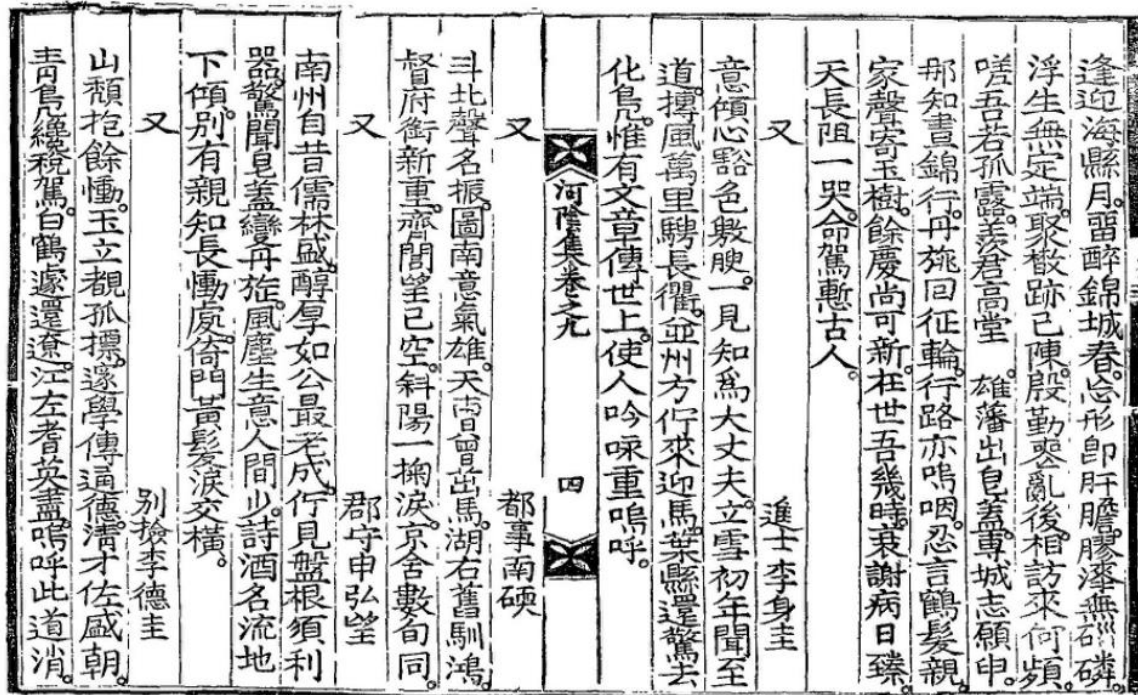 逢迎海縣月。留醉錦城春。忘形卽肝膽。膠漆無磷。
浮生無定端。聚散跡已陳。殷勤喪亂後。相訪來何頻。
嗟吾若孤露。羨君高堂　雄藩出皂蓋。專城志願申。
那知晝錦行。丹旐回征輪。行路亦嗚咽。忍言鶴髮親。
家聲寄玉樹。餘慶尙可新。在世吾幾時。衰謝病日臻。
天長阻一哭。命駕慙古人。
又　進士李身圭
意傾心豁色敷腴。一見知爲大丈夫。立雪初年聞至
道。搏風萬里騁長衢。並州方佇來迎馬。葉縣還驚去
化鳧。惟有文章傳世上。使人吟咏重嗚呼。
河陰集卷之九　四
又　都事南碝
斗北聲名振。圖南意氣雄。天曾茁馬。湖右舊馴鴻。
督府銜新重。齊閭望已空。斜陽一掬淚。京舍數旬同。
又　郡守申弘望
南州自昔儒林盛。醇厚如公最老成。佇見盤根須利
器。驚聞皂蓋變丹旌。風塵生意人間少。詩酒名流地
下傾。別有親知長慟處。倚門黃髮淚交橫。
又　別撿李德圭
山頹抱餘慟。玉立覩孤標。邃學傳德。淸才佐盛朝。
靑鳧纔稅駕。白鶴遽還遼。江左耆英盡。嗚呼此道消。